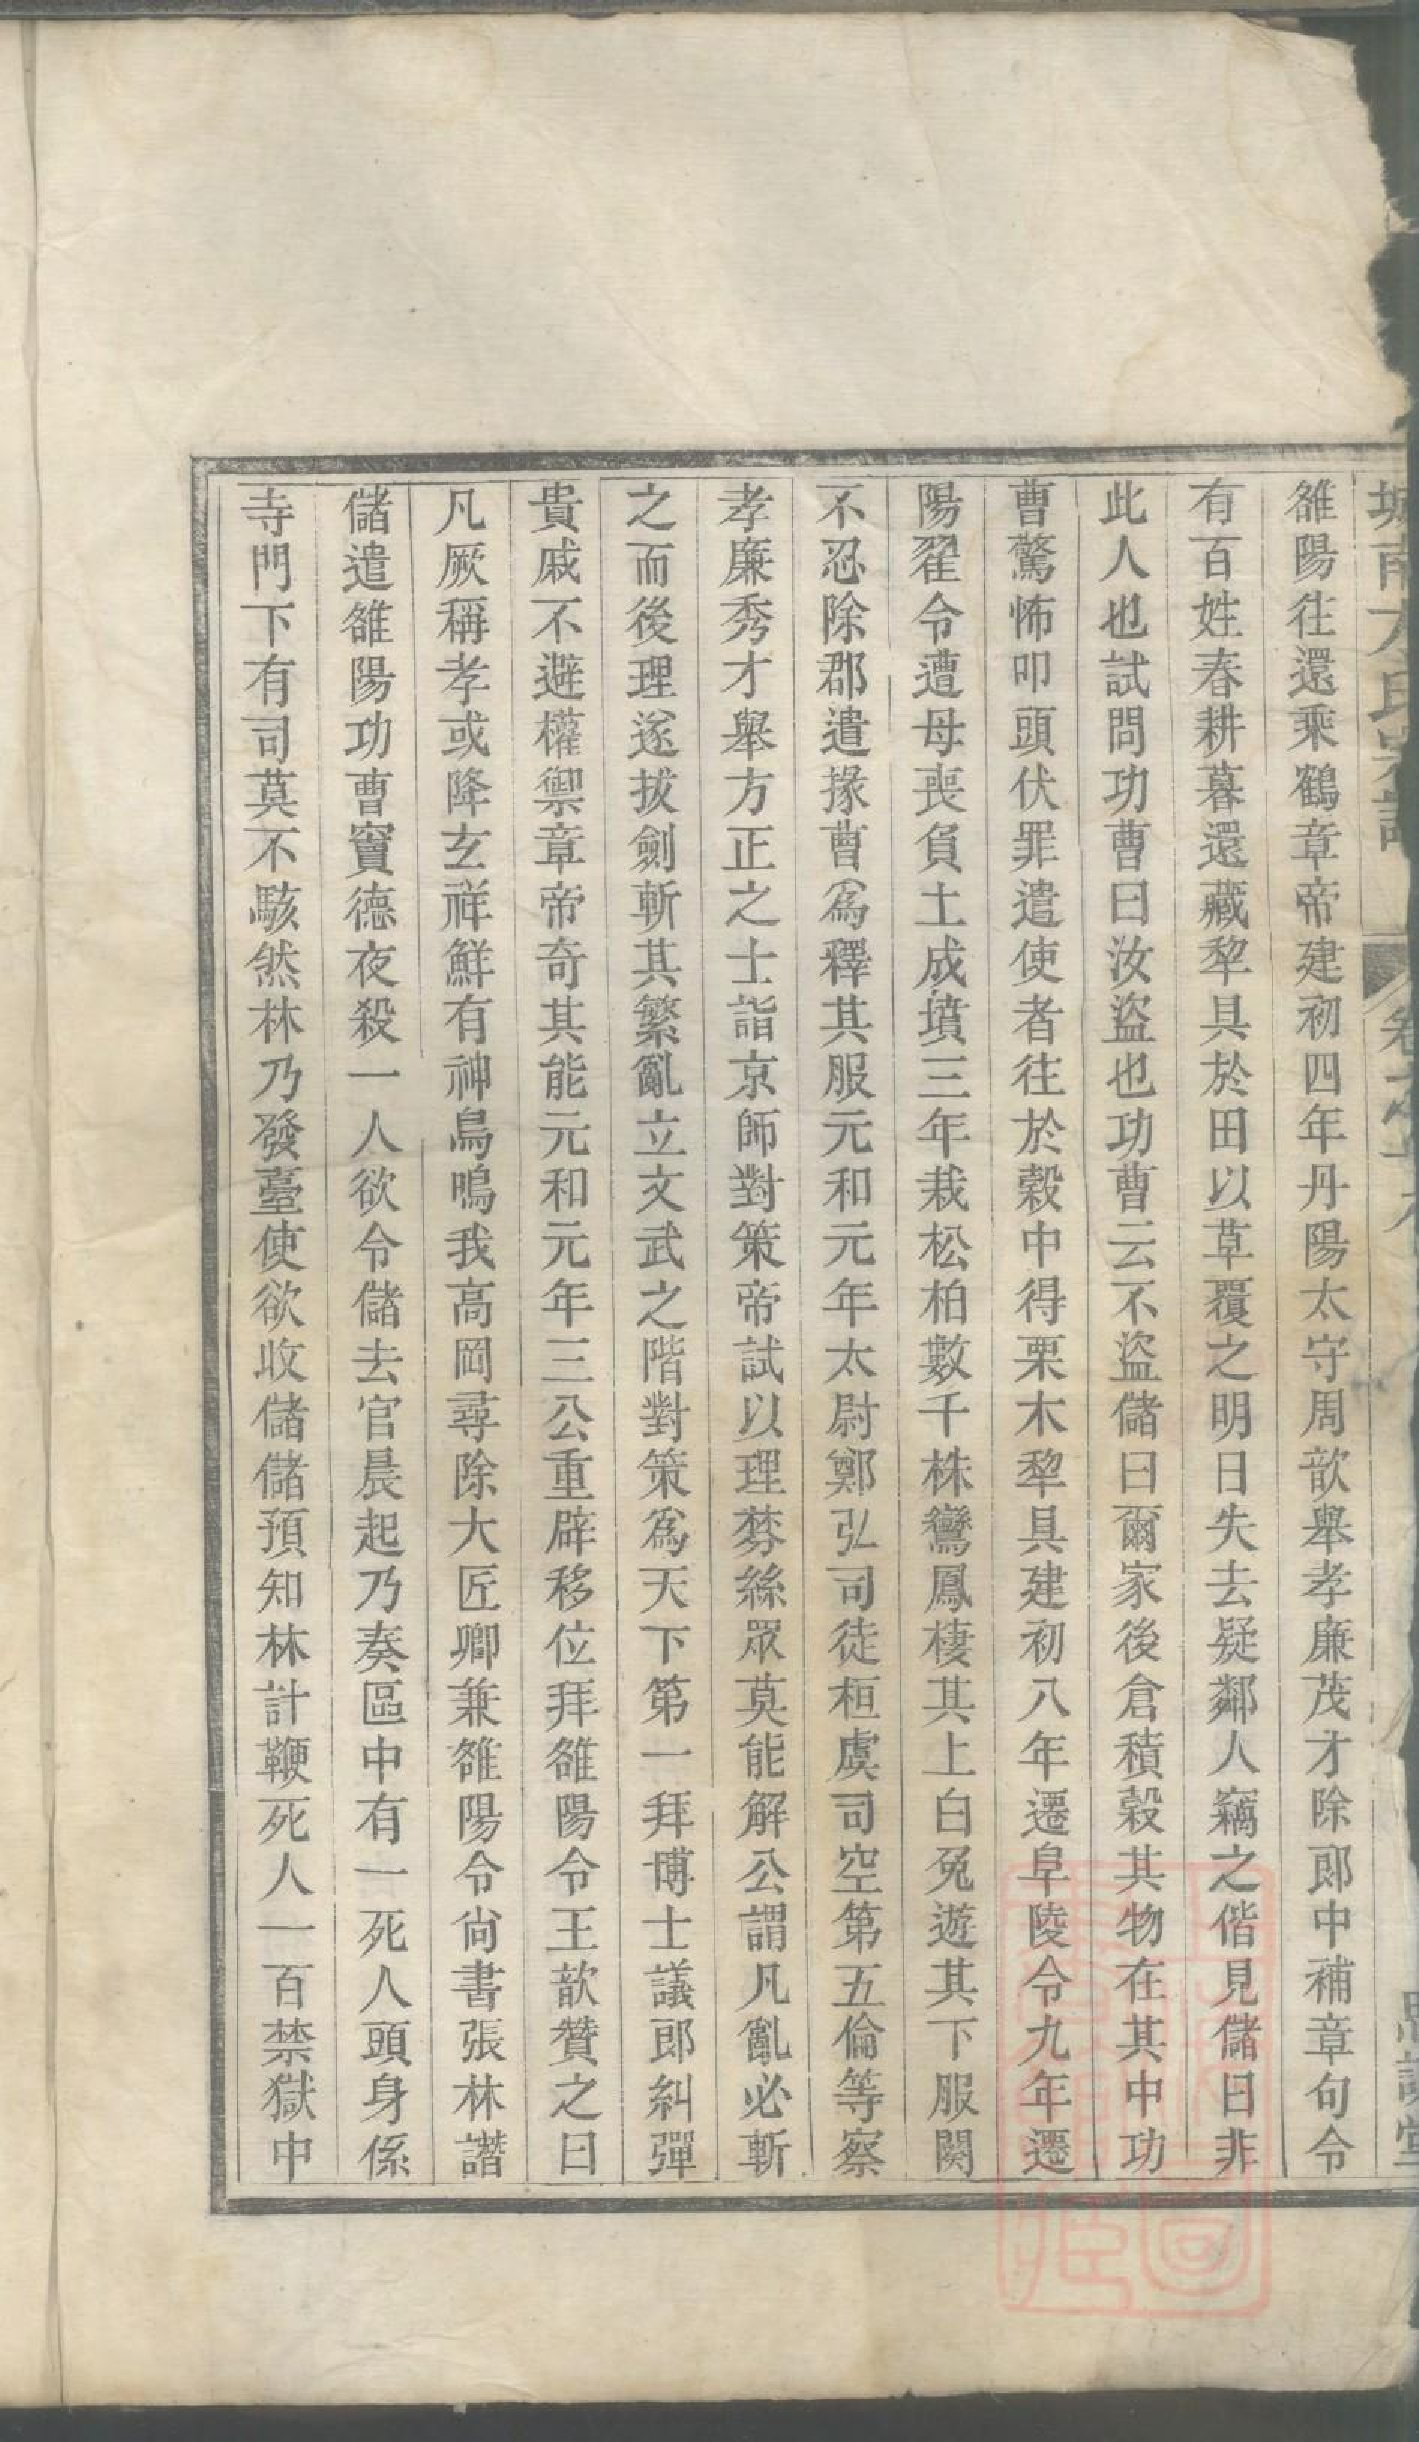 城南方氏宗譜 卷之十九 思誠堂
雒陽往還乘鶴章帝建初四年丹陽太守周歆舉孝廉茂才除郎中補章句令
有百姓春耕暮還藏犂具於田以草覆之明日失去疑鄰人竊之偕見儲曰非
此人也試問功曹曰汝盜也功曹云不盜儲曰爾家後倉積穀其物在其中功
曹驚怖叩頭伏罪遣使者往於穀中得栗木犂具建初八年遷阜陵令九年遷
陽翟令遭母喪負土成墳三年栽松柏數千株鸞鳳棲其上白兔遊其下服闋
不忍除郡遣掾曹爲釋其服元和元年太尉鄭弘司徒桓虞司空第五倫等察
孝廉秀才舉方正之士詣京師對策帝試以理棼絲眾莫能解公謂凡亂必斬
之而後理遂拔劍斬其繁亂立文武之階對策爲天下第一拜博士議郎糾彈
貴戚不避權禦章帝奇其能元和元年三公重辟移位拜雒陽令王歆贊之曰
凡厥稱孝或降玄祥鮮有神鳥鳴我高岡尋除大匠卿兼雒陽令尚書張林譖
儲遣雒陽功曹竇德夜殺一人欲令儲去官晨起乃奏區中有一死人頭身係
寺門下有司莫不駭然林乃發臺使欲收儲儲預知林計鞭死人一百禁獄中